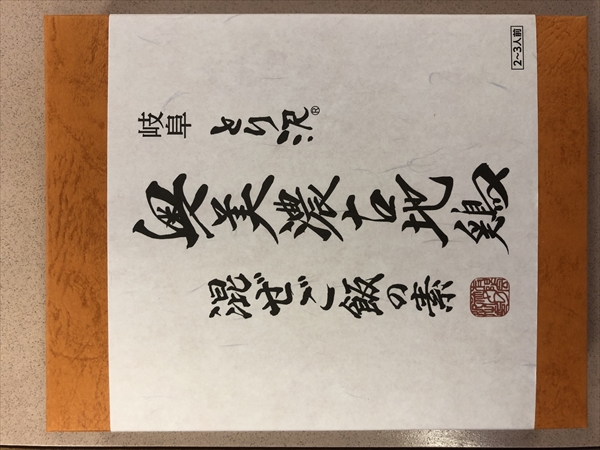 岐阜 とり沢®
奥美濃古地鶏
混ぜご飯の素
2~3人前